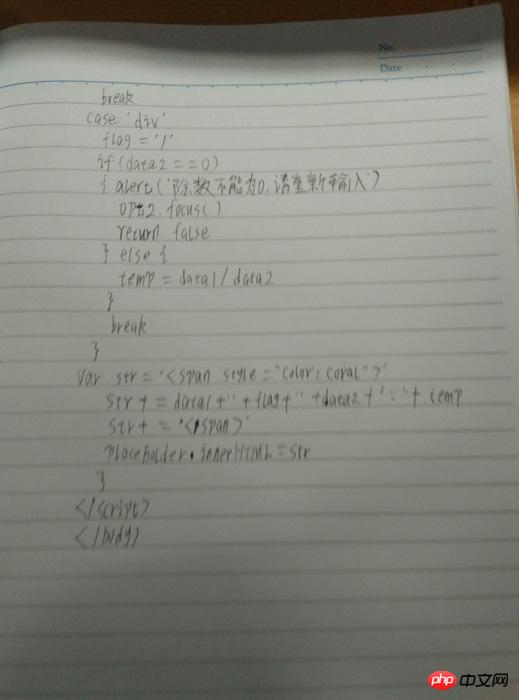 No.
Date
break
case 'div'
flag = '/'
if (data2 == 0)
{ alert('除数不能为0,请重新输入')
opt2.focus()
return false
} else {
temp = data1 / data2
}
break
}
var str = '<span style="color: coral">'
str + = data1 + '' + flag + '' + data2 + '=' + temp
str + = '</span>'
placeholder.innerHTML = str
}
</script>
</body>
php 中文网